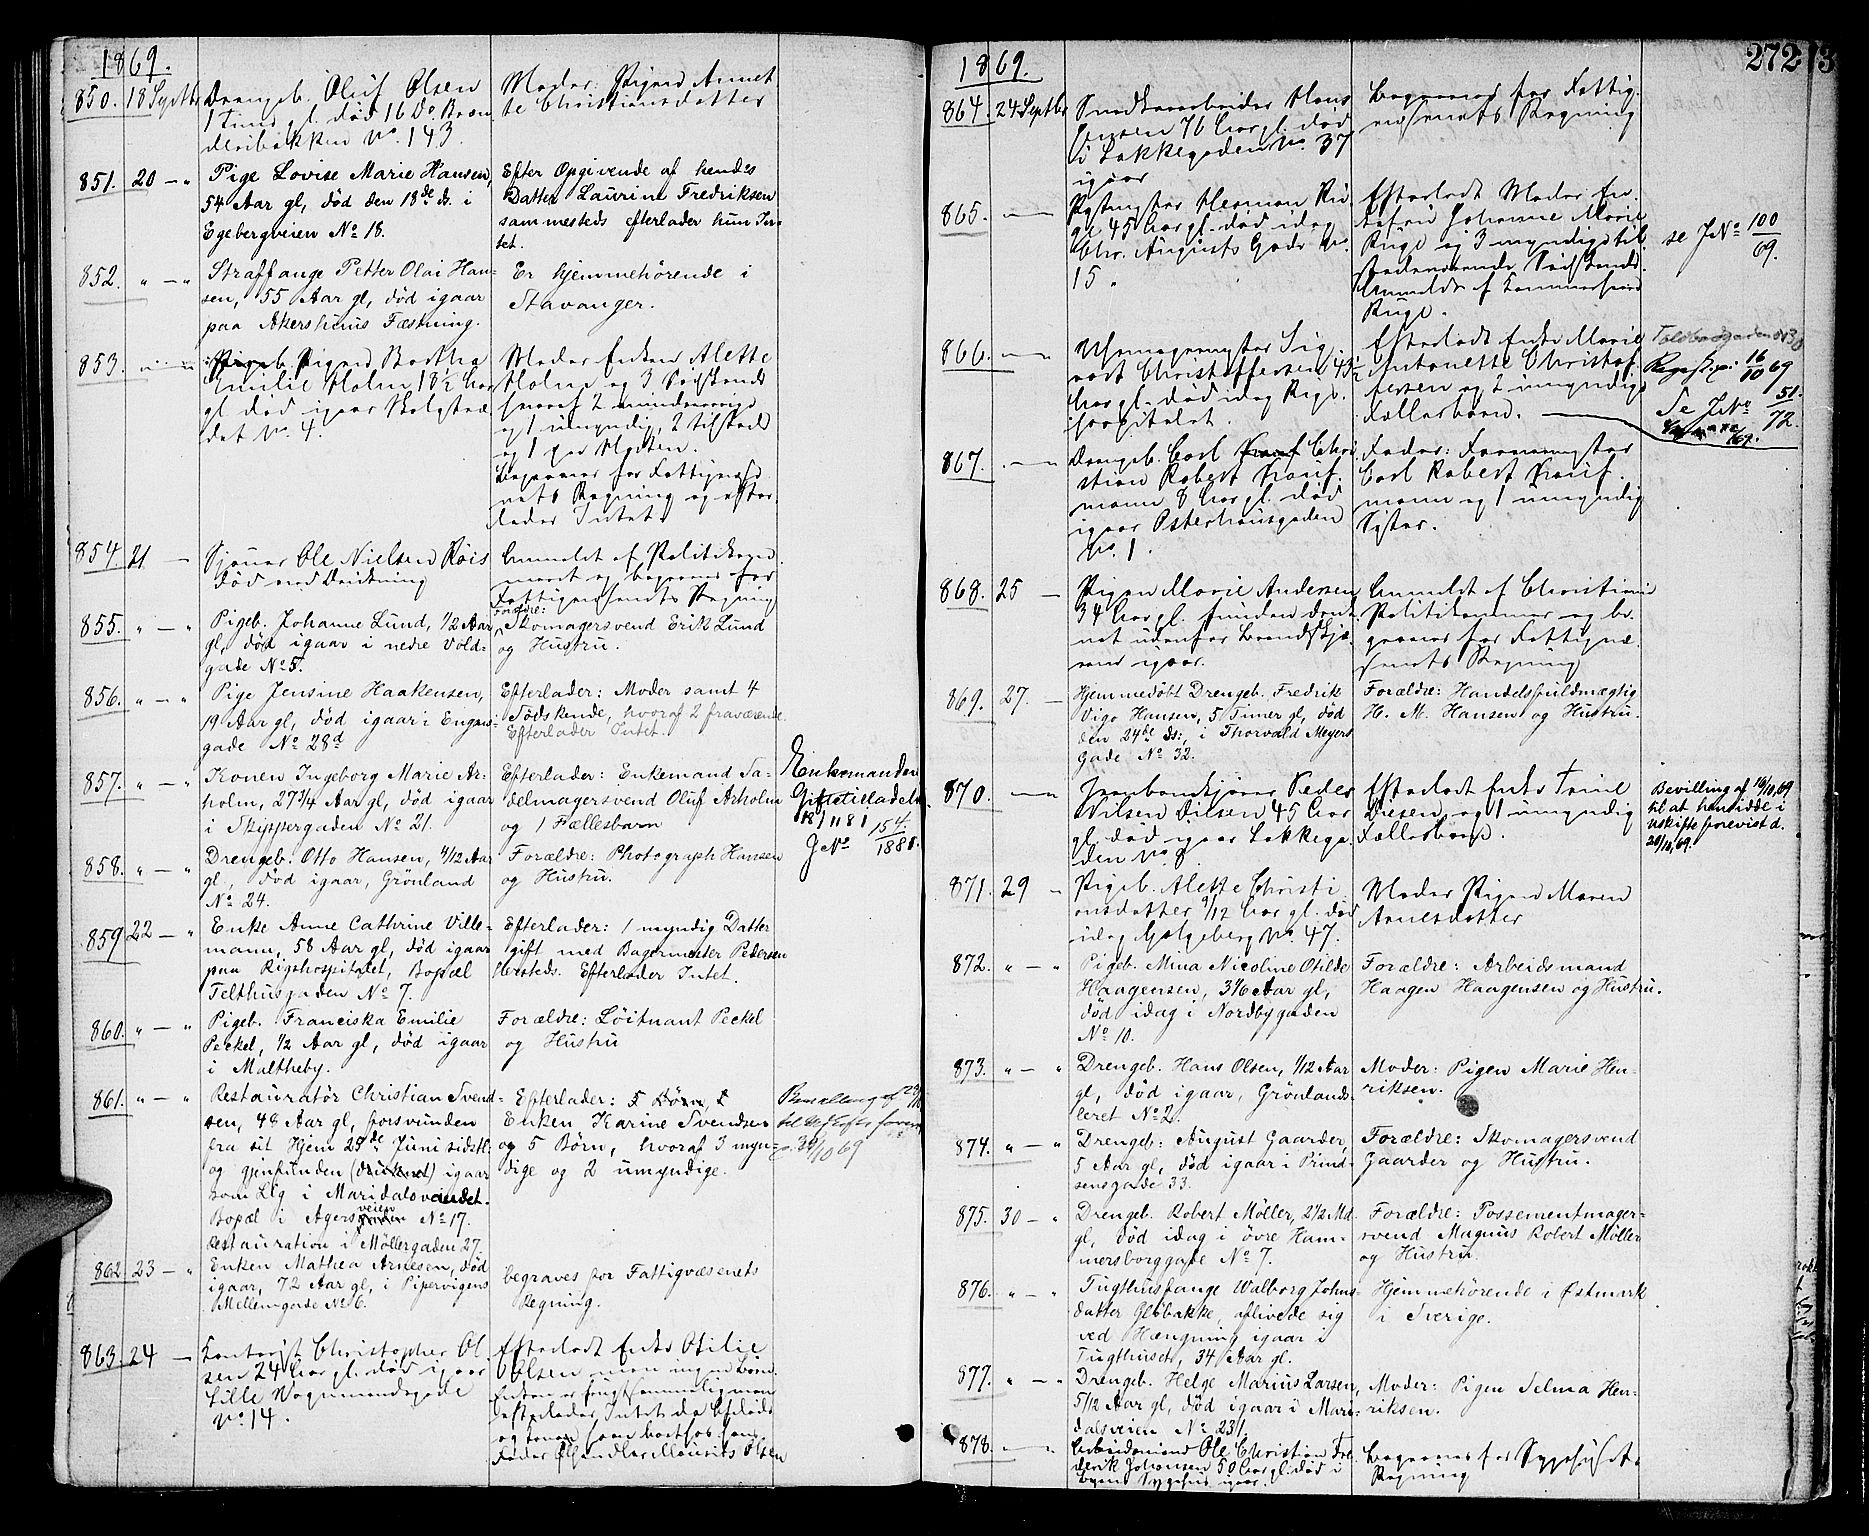 1869.
850. 18 Septbr Drengeb. Oluf Olsen
1 Time gl. død 16 Do. Bræn
deribakken No. 143.
Moder: Pigen Annet
te Christiansdatter
851. 20 — " Pige Lovise Marie Hansen,
54 Aar gl, død den 18de ds. i
Egebergveien No 18.
Efter Opgivende af hendes
Datter Laurine Fredriksen
sammesteds efterlader hun In-
tet.
852. " — " Straffange Petter Olai Han-
sen, 55 Aar gl, død igaar
paa Akershuus Fæstning.
Er hjemmehørende i
Stavanger.
853. " — " Pigen Bertha
Emilie Holm 18½ Aar
gl død igaar
No. 4.
Moder Enken Alette
Holm og 3 Sødskende
hvoraf 2 mindreaarige
og 1 umyndig, 2 tilstede
og 1 paa Modum.
Begraves for Fattigvæse
nets Regning og efter
lader Intet.
854. 21 — Ole Nielsen Röis
død ved Drukning
Anmeldt af Politikam
meret og begraves for
Fattigvæsenets Regning
855. " — " Pigeb. Johanne Lund, 1/2 Aar
gl, død igaar i nedre Vold-
gade No 5.
Forældre:
Skomagersvend Erik Lund
og Hustru.
856. " — " Pige Jensine Haakensen,
19 Aar gl, død igaar i Engens-
gade No 28d
Efterlader: Moder samt 4
Sødskende, hvoraf 2 fraværende.
Efterlader Intet.
857. " — " Konen Ingeborg Marie Ar-
holm, 27 3/4 Aar gl, død igaar
i Skippergaden No 21.
Efterlader: Enkemand Sa-
delmagersvend Oluf Arholm
og 1 Fællesbarn
Enkemanden
Giftetilladelse
18/11 81
JNo 154/1881.
858. " — " Drengeb. Otto Hansen, 4/12 Aar
gl, død igaar, Grønland
No 24.
Forældre: Photograph Hansen
og Hustru.
859 22 — " Enke Anne Cathrine Ville-
mann, 58 Aar gl, død igaar
paa Rigshospitalet, Bopæl
Telthusgaden No 7.
Efterlader: 1 myndig Datter
gift med Bagermester Pedersen
hersteds. Efterlader Intet.
860. " — " Pigeb. Franciska Emilie
Peckel, 1/2 Aar gl, død igaar
i Maltheby.
Forældre: Løitnant Peckel
og Hustru
861. " — " Restauratör Christian Svend-
sen, 48 Aar gl, forsvunden
fra sit Hjem 25de Juni sidstl.
og gjenfunden (druknet) igaar
som Lig i Maridalsvandet.
Bopæl i Agersveien No 17.
Restauration i Møllergaden 27
Efterlader: 5 Børn,
Enken Karine Svendsen
og 5 Børn, hvoraf 3 myn-
dige og 2 umyndige.
862 23 — " Enken Mathea Arnesen, død
igaar, 72 Aar gl, i Pipervigens
Mellemgade No 6.
begraves for Fattigvæsenets
Regning.
863 24 — Kontorist Christopher Ol
sen 24 Aar gl. død igaar
Lille Vognmandsgade
No. 14.
Efterladt Enke Otilie
Olsen men ingen Børn.
272
1869.
864. 24 Septbr Snedkerarbeider Hans
Jensen 76 Aar gl. død
i Lakkegaden No. 37
igaar
Begraves for Fattig
væsenets Regning
865. — Herman Ru
ge 45 Aar gl. død idag
Chr. Augusts Gade No.
15.
Efterladt Moder En
kefru Johanne Marie
Ruge og 3 myndige til
stedeværende Sødskende.
Anmeldt af Kammerherre
Ruge.
se JNo 100/69.
866. — Uhrmagermester Sig
vart Christoffersen 45½
Aar gl. død idag Rigs
hospitalet.
Efterladt Enke Marie
Antonette Christof
fersen og 2 umyndige
Fællesbørn.
Toldbodgaden
16/10 69
Se JNo 151/72.
867. — Drengeb. Carl Chri
stian Robert
mann 8 Aar gl. død
igaar Osterhausgaden
No. 1.
Fader: Farvermester
Carl Robert
mann og 1 umyndig
Søster.
868. 25 — Pigen Marie Andersen
34 Aar gl. funden druk
net udenfor
igaar.
Anmeldt af Christiania
Politikammer og be
graves for Fattigvæ
senets Regning
869. 27. — Hjemmedøbt Drengeb. Fredrik
Vigo Hansen, 5 Timer gl, død
den 24de ds:, i Thorvald Meyers
Gade No 32.
Forældre: Handelsfuldmægtig
H. M. Hansen og Hustru.
870. — Peder
Nilsen Diesen 45 Aar
gl. død igaar Lakkega
den No. 8.
Efterladt Enke Trine
Diesen og 1 umyndig
Fællesbarn.
Bevilling af 16/10 69
til at hensidde i
uskifte forevist d.
20/10, 69.
871. 29 — Pigeb. Alette Christi
ansdatter 9/12 Aar gl. død
idag Galgeberg No. 47.
Moder Pigen Maren
Arnesdatter
872. " — " Pigeb. Mina Nicoline Otilde
Haagensen, 3 1/6 Aar gl,
død idag i Nordbygaden
No 10.
Forældre: Arbeidsmand
Haagen Haagensen og Hustru.
873. " — " Drengeb. Hans Olsen, 1/12 Aar
gl, død igaar, Grønlands-
leret No 2.
Moder: Pigen Marie Hen-
riksen.
874. " — " Drengeb: August Gaarder,
5 Aar gl, død igaar i Prind-
sensgade 33.
Forældre: Skomagersvend
Gaarder og Hustru.
875. 30 — " Drengeb. Robert Møller, 2 1/2 Md.
gl, død idag i øvre Ham-
mersborggade No 7.
Forældre: Possementmager-
svend Magnus Robert Møller
og Hustru.
876. " — " Tugthusfange Walborg Johns-
datter Glöbakke, aflivede sig
ved Hængning igaar i
Tugthuset, 34 Aar gl.
Hjemmehørende i Østmark
i Sverige.
877. " — " Drengeb. Helge Marius Larsen,
5/12 Aar gl, død igaar i Mari-
dalsveien No 231.
Moder: Pigen Selma Hen-
riksen.
878. — Arbeidsmand Ole Christian Fre
derik Johansen 50 Aar gl. død i
Byens Sygehus igaar.
Begraves for Sygehusets
Regning